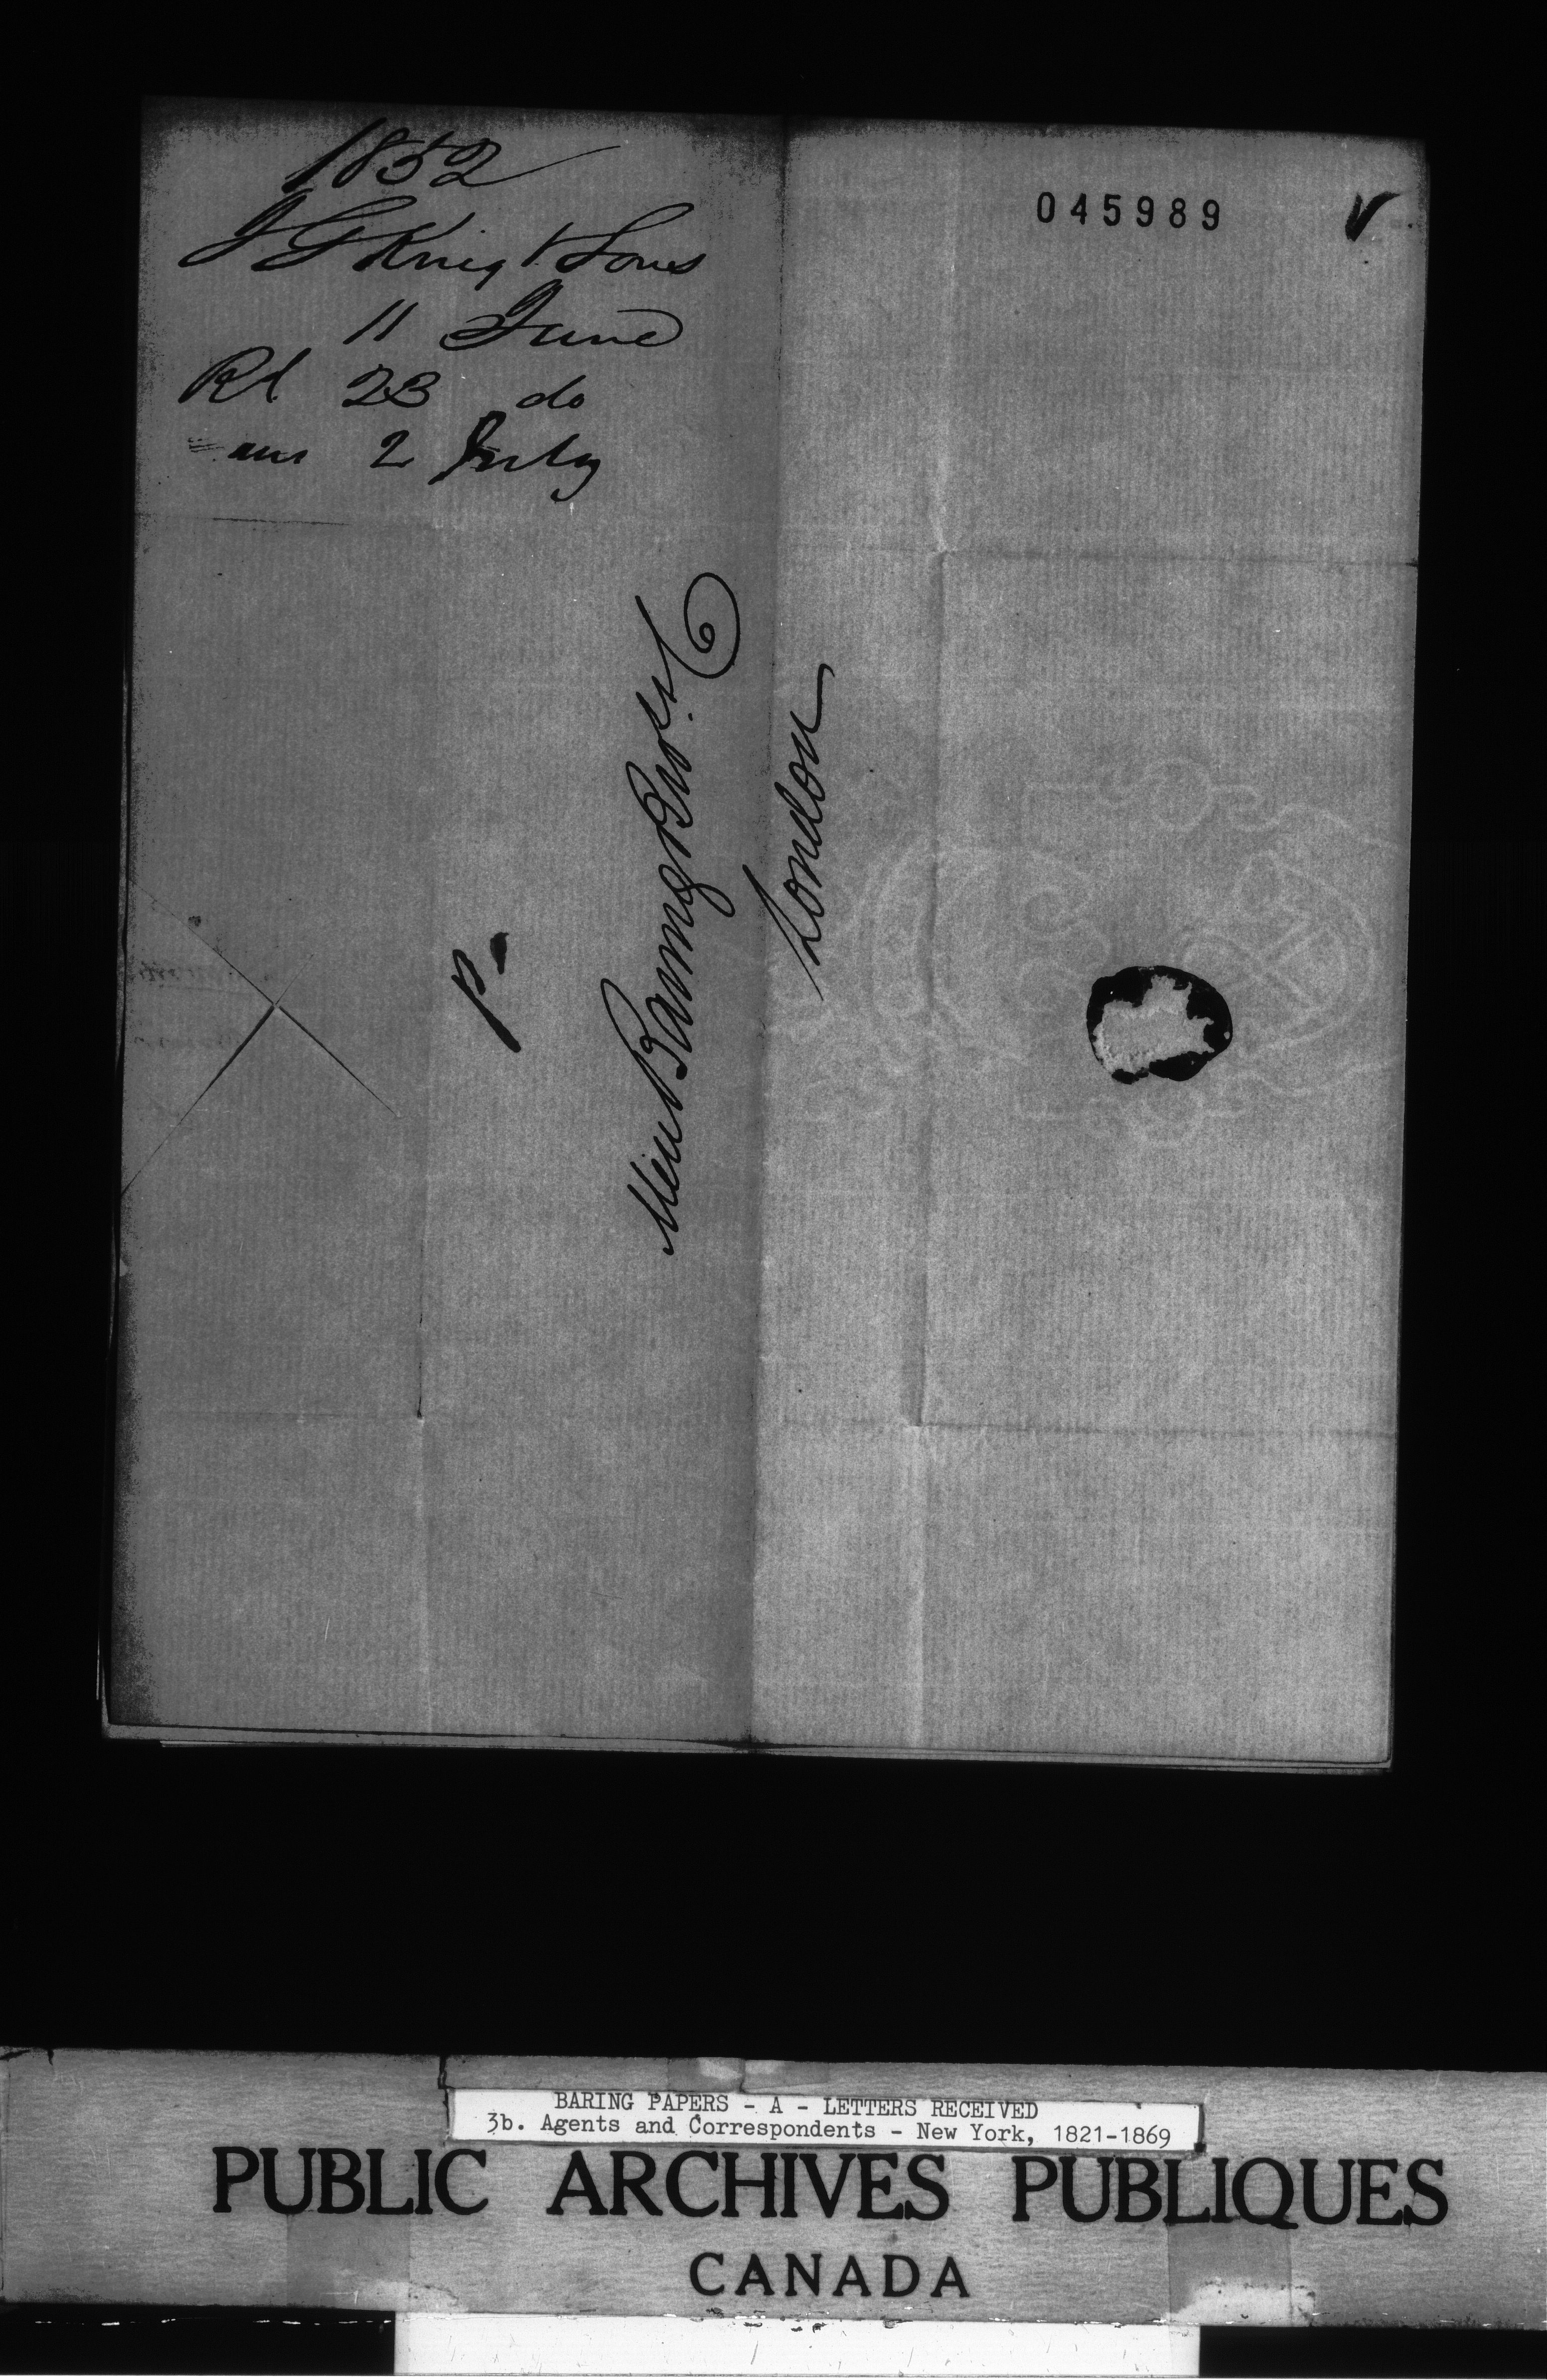 1852
J G King & Sons
11 June
Rd 23 do
ans 2 July
045989
P-
Messrs Baring Bros. & Co
London
BARING PAPERS - A - LETTERS RECEIVED
3b. Agents and Correspondents - New York, 1821-1869
PUBLIC ARCHIVES PUBLIQUES
CANADA